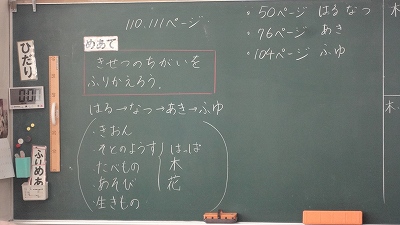 110.111ページ
・50ページ はる なつ
・76ページ あき
・104ページ ふゆ
めあて
きせつのちがいを
ふりかえろう。
はる→なつ→あき→ふゆ
・きおん
・そとのようす
・たべもの
・あそび
・生きもの
はっぱ
木
花
ひだり
ふり
めあ
木
木